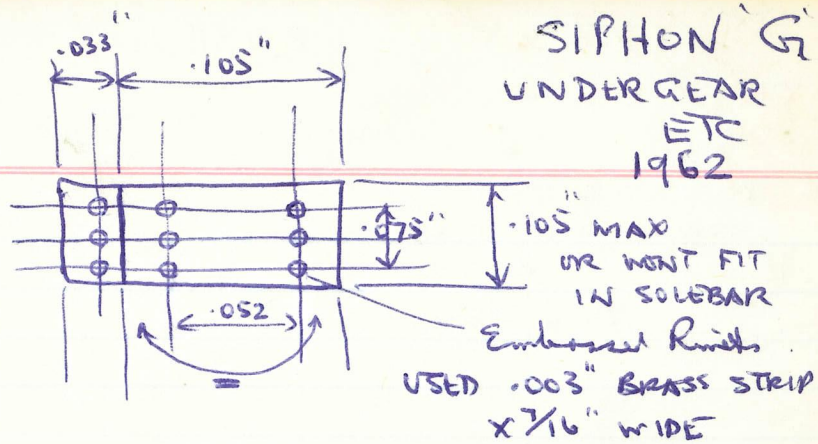 SIPHON 'G'
UNDERGEAR
ETC
1962
.033"
.105"
.075"
.105" MAX
OR WONT FIT
IN SOLEBAR
.052
=
Embossed Rivets
USED .003" BRASS STRIP
x 3/16" WIDE